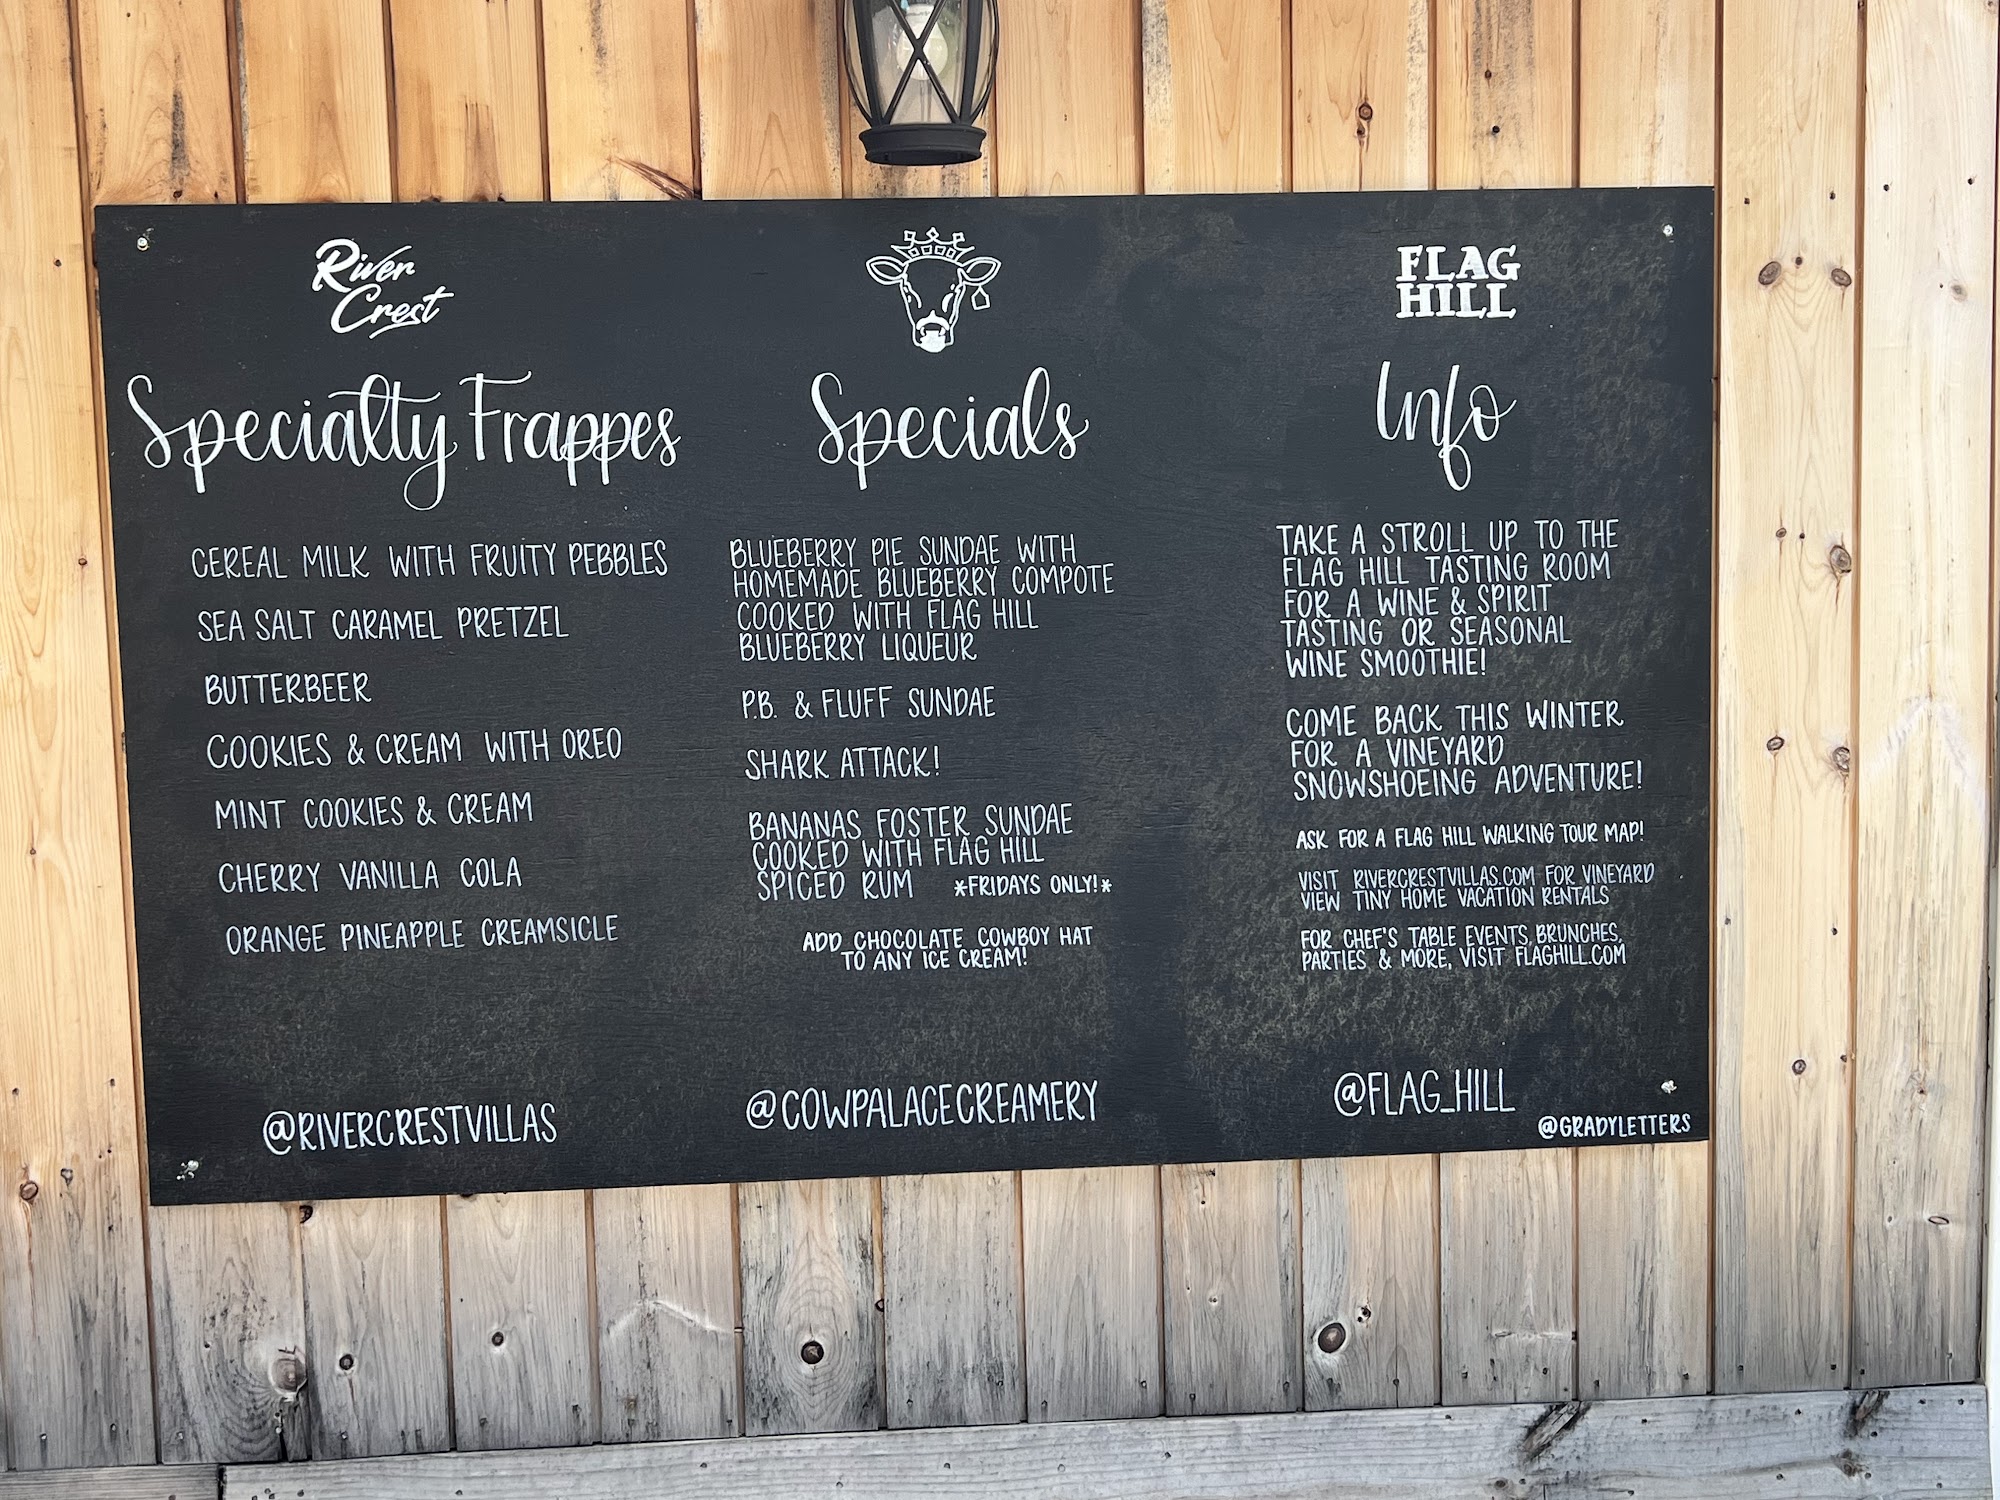 River
Crest
Specialty Frappes
CEREAL MILK WITH FRUITY PEBBLES
SEA SALT CARAMEL PRETZEL
BUTTERBEER
COOKIES & CREAM WITH OREO
MINT COOKIES & CREAM
CHERRY VANILLA COLA
ORANGE PINEAPPLE CREAMSICLE
@RIVERCRESTVILLAS
Specials
BLUEBERRY PIE SUNDAE WITH
HOMEMADE BLUEBERRY COMPOTE
COOKED WITH FLAG HILL
BLUEBERRY LIQUEUR
P.B. & FLUFF SUNDAE
SHARK ATTACK!
BANANAS FOSTER SUNDAE
COOKED WITH FLAG HILL
SPICED RUM *FRIDAYS ONLY!*
ADD CHOCOLATE COWBOY HAT
TO ANY ICE CREAM!
@COWPALACECREAMERY
FLAG
HILL
Info
TAKE A STROLL UP TO THE
FLAG HILL TASTING ROOM
FOR A WINE & SPIRIT
TASTING OR SEASONAL
WINE SMOOTHIE!
COME BACK THIS WINTER
FOR A VINEYARD
SNOWSHOEING ADVENTURE!
ASK FOR A FLAG HILL WALKING TOUR MAP!
VISIT RIVERCRESTVILLAS.COM FOR VINEYARD
VIEW TINY HOME VACATION RENTALS
FOR CHEF'S TABLE EVENTS, BRUNCHES,
PARTIES & MORE, VISIT FLAGHILL.COM
@FLAG_HILL
@GRADYLETTERS